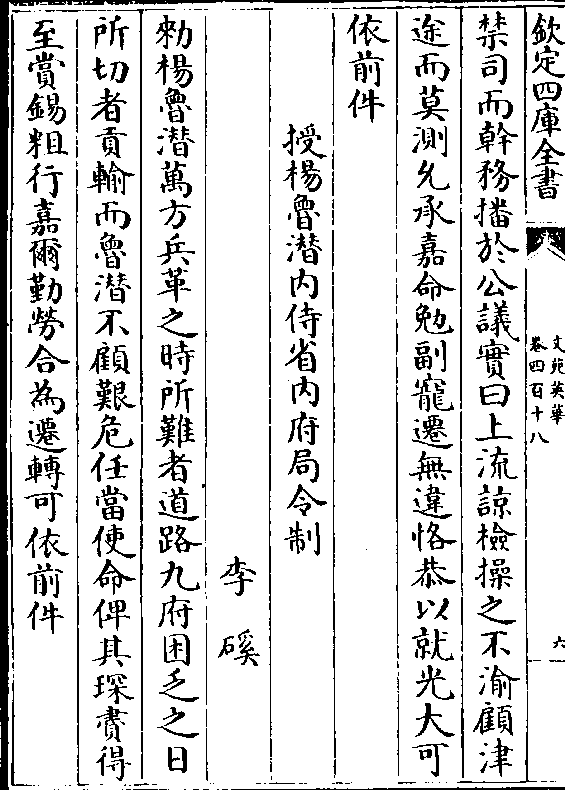 欽定四庫全書
文苑英華
卷四百十八
六
禁司而幹務播於公議實曰上流諒檢操之不渝顧津
途而莫測允承嘉命勉副寵遷無違恪恭以就光大可
依前件
授楊魯潜内侍省内府局令制
李磎
勑楊魯潜萬方兵革之時所難者道路九府困乏之日
所切者貢輸而魯潜不顧艱危任當使命俾其琛賮得
至賞錫粗行嘉爾勤勞合為遷轉可依前件